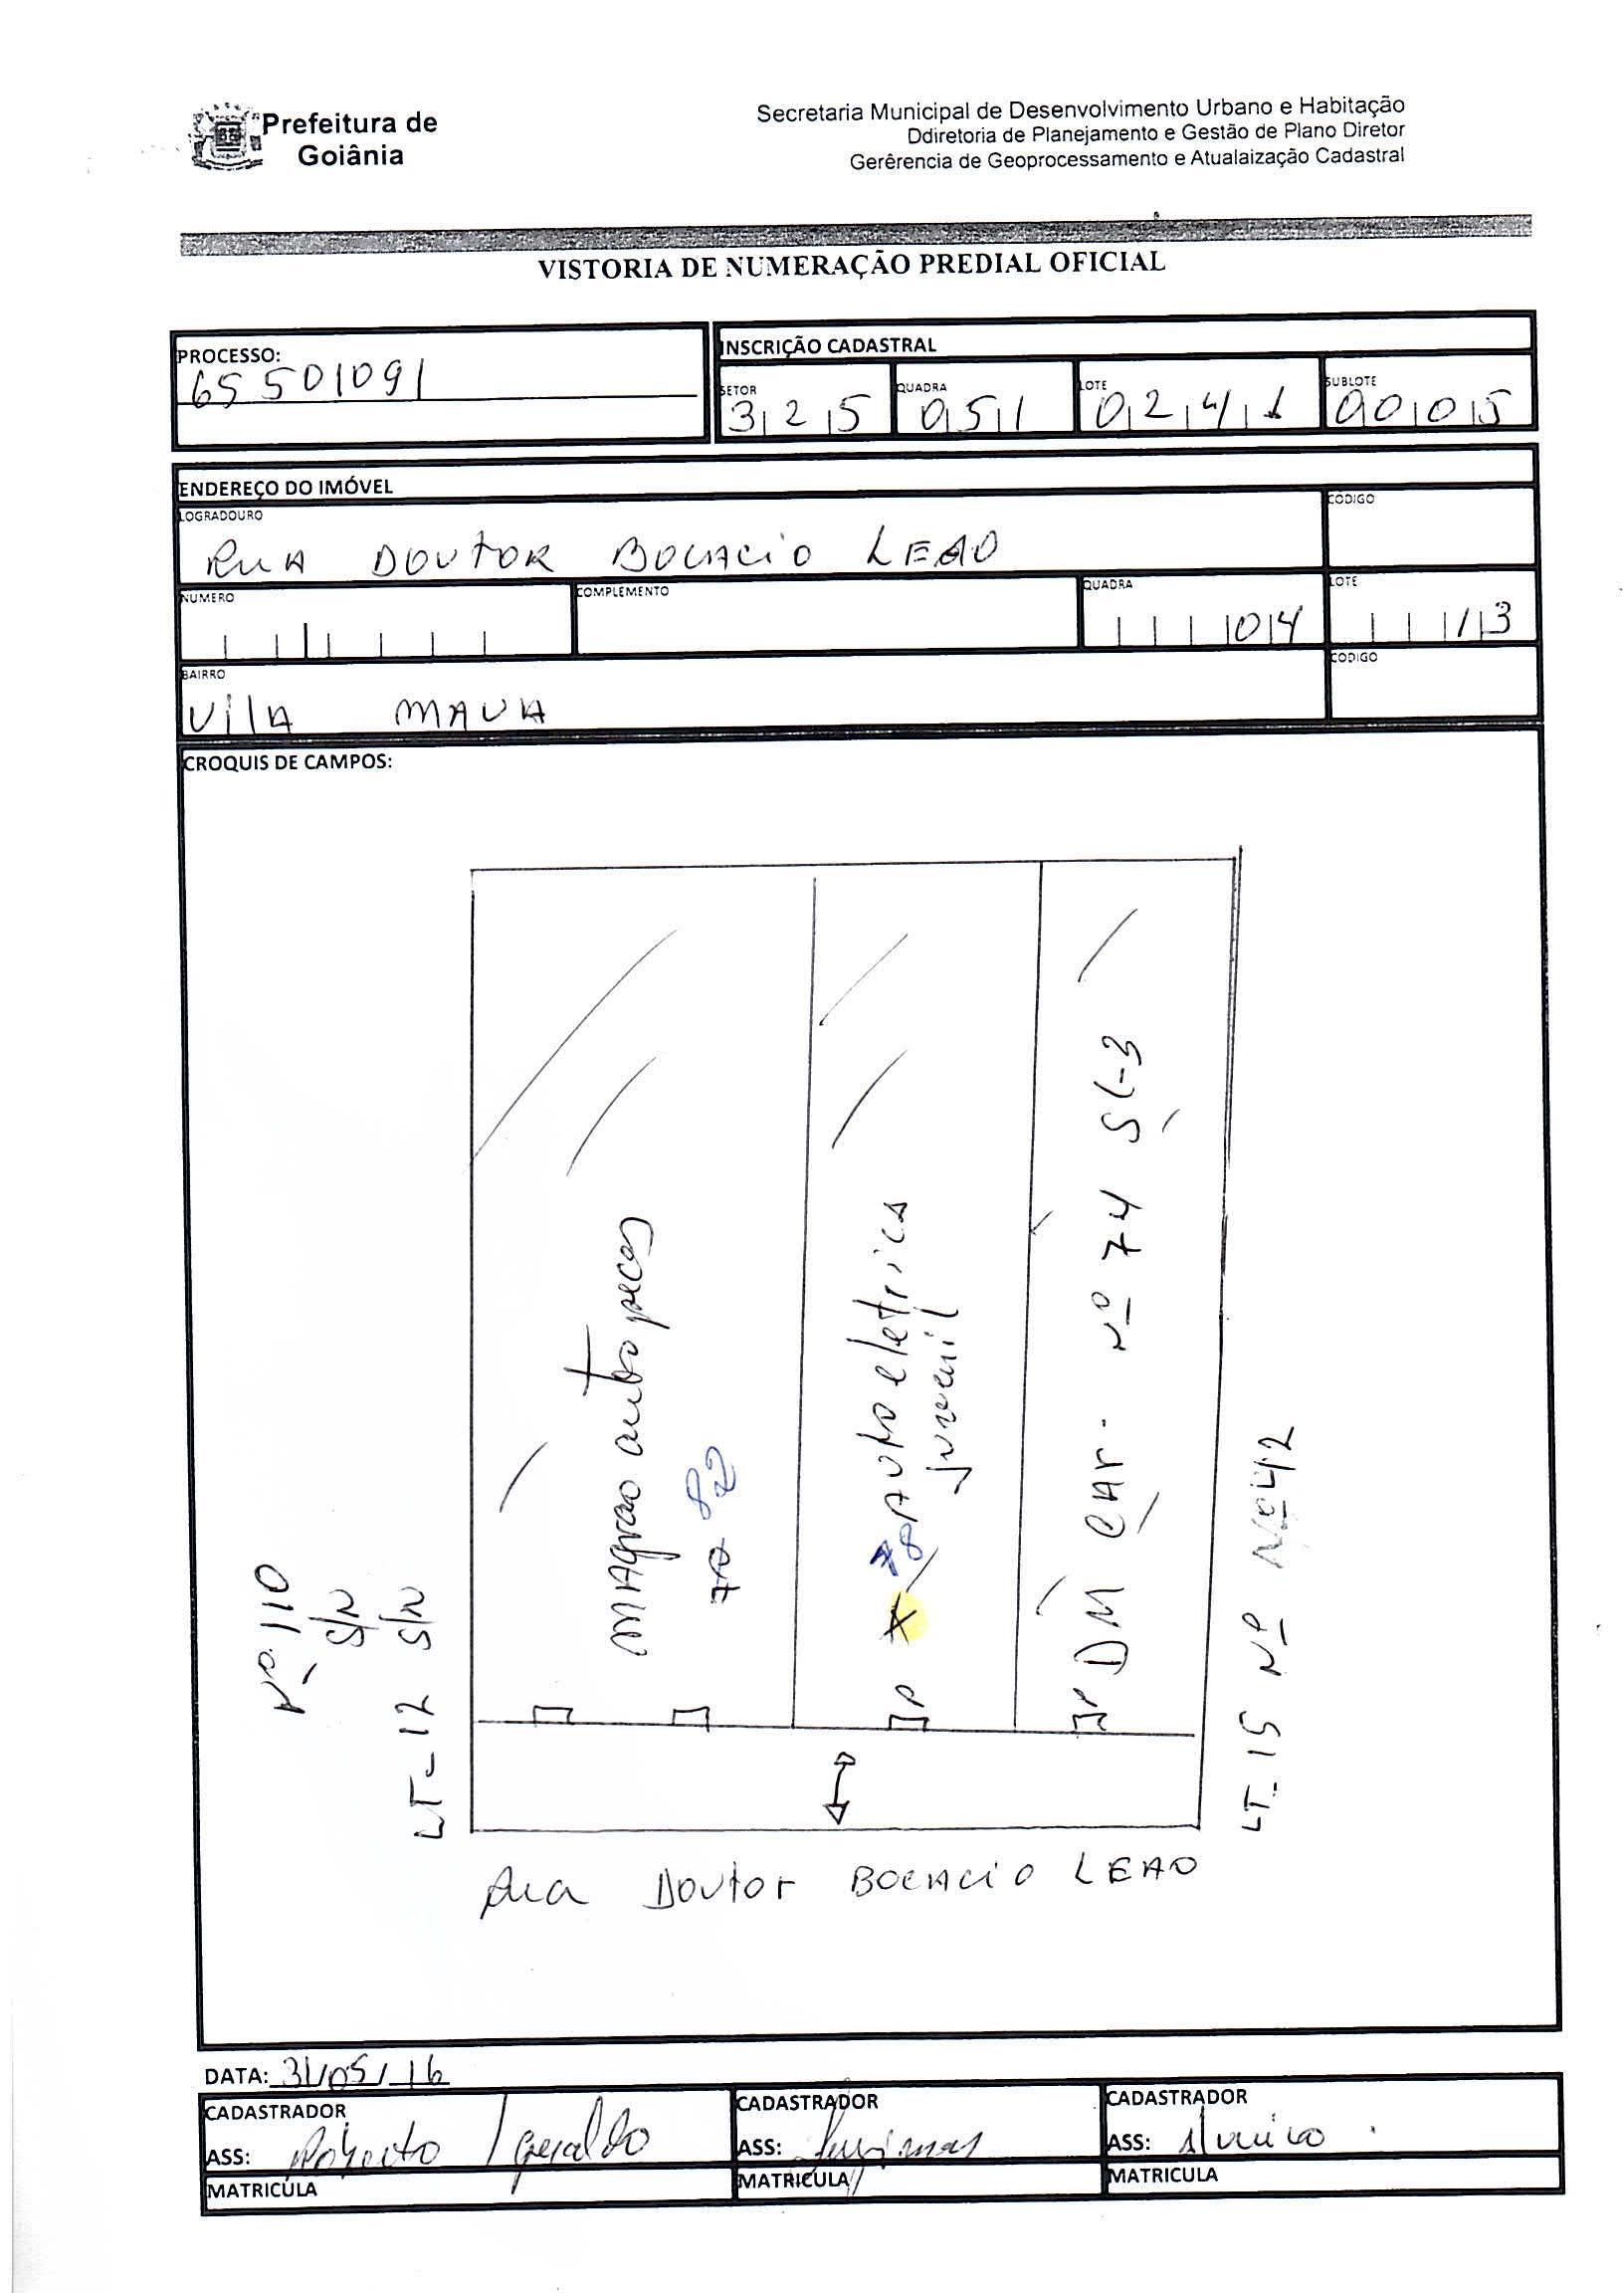 Prefeitura de
Goiânia
Secretaria Municipal de Desenvolvimento Urbano e Habitação
Ddiretoria de Planejamento e Gestão de Plano Diretor
Gerêrencia de Geoprocessamento e Atualaização Cadastral
VISTORIA DE NUMERAÇÃO PREDIAL OFICIAL
PROCESSO:
65501091
INSCRIÇÃO CADASTRAL
SETOR
325
QUADRA
051
LOTE
0241
SUBLOTE
0005
ENDEREÇO DO IMÓVEL
LOGRADOURO
RUA DOUTOR BOCACIO LEAO
CODIGO
NUMERO
COMPLEMENTO
QUADRA
04
LOTE
13
BAIRRO
VIlA MAUA
CODIGO
CROQUIS DE CAMPOS:
Nº 110
S/N
LT-12 S/N
MAgrao auto pecas
82
P
78 AUto eletrica
Juvenil
DM CAR - Nº 74 SL-3
LT. 15 Nº 42
Rua Doutor BOCACIO LEAO
DATA: 31/05/16
CADASTRADOR
ASS: Roberto / Geraldo
MATRICULA
CADASTRADOR
ASS:
MATRICULA
CADASTRADOR
ASS:
MATRICULA